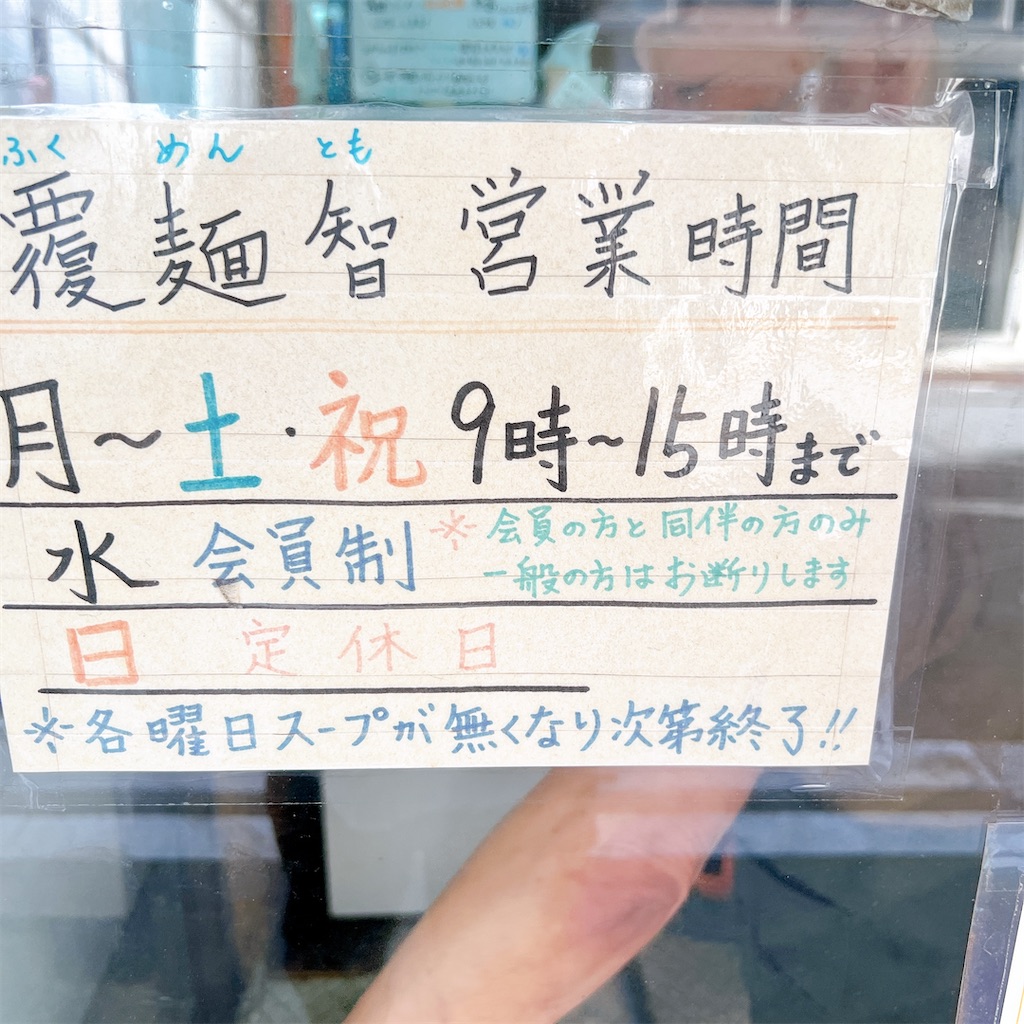 ふく めん とも
覆麺智 営業時間
月〜土・祝 9時〜15時まで
水 会員制 ※会員の方と同伴の方のみ
一般の方はお断りします
日 定休日
※各曜日スープが無くなり次第終了!!